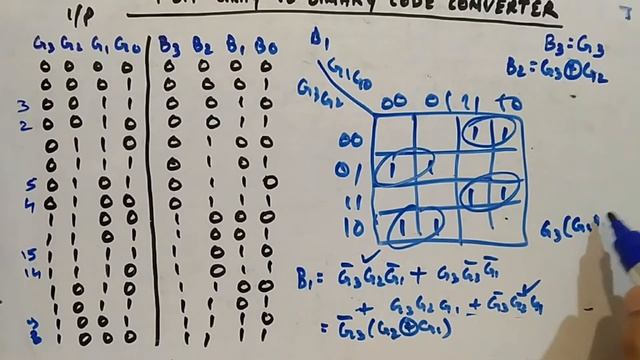 GRAY TO BINARY CODE CONVERTER
I/P
G3 G2 G1 G0 B3 B2 B1 B0
0 0 0 0 0 0 0 0
0 0 0 1 0 0 0 1
3 0 0 1 1 0 0 1 0
2 0 0 1 0 0 0 1 1
0 1 1 0 0 1 0 0
0 1 1 1 0 1 0 1
5 0 1 0 1 0 1 1 0
4 0 1 0 0 0 1 1 1
1 1 0 0 1 0 0 0
1 1 0 1 1 0 0 1
15 1 1 1 1 1 0 1 0
14 1 1 1 0 1 0 1 1
1 0 1 0 1 1 0 0
1 0 1 1 1 1 0 1
1 0 0 1 1 1 1 0
8 1 0 0 0 1 1 1 1
B1
G1G0
G3G2
00 01 11 10
00 1 1
01 1 1
11 1 1
10 1 1
B3 = G3
B2 = G3 ⊕ G2
G3(G1
B1 = G̅3G2G̅1 + G3G̅2G̅1
+ G3G2G1 + G̅3G̅2G1
= G̅3(G2 ⊕ G1)